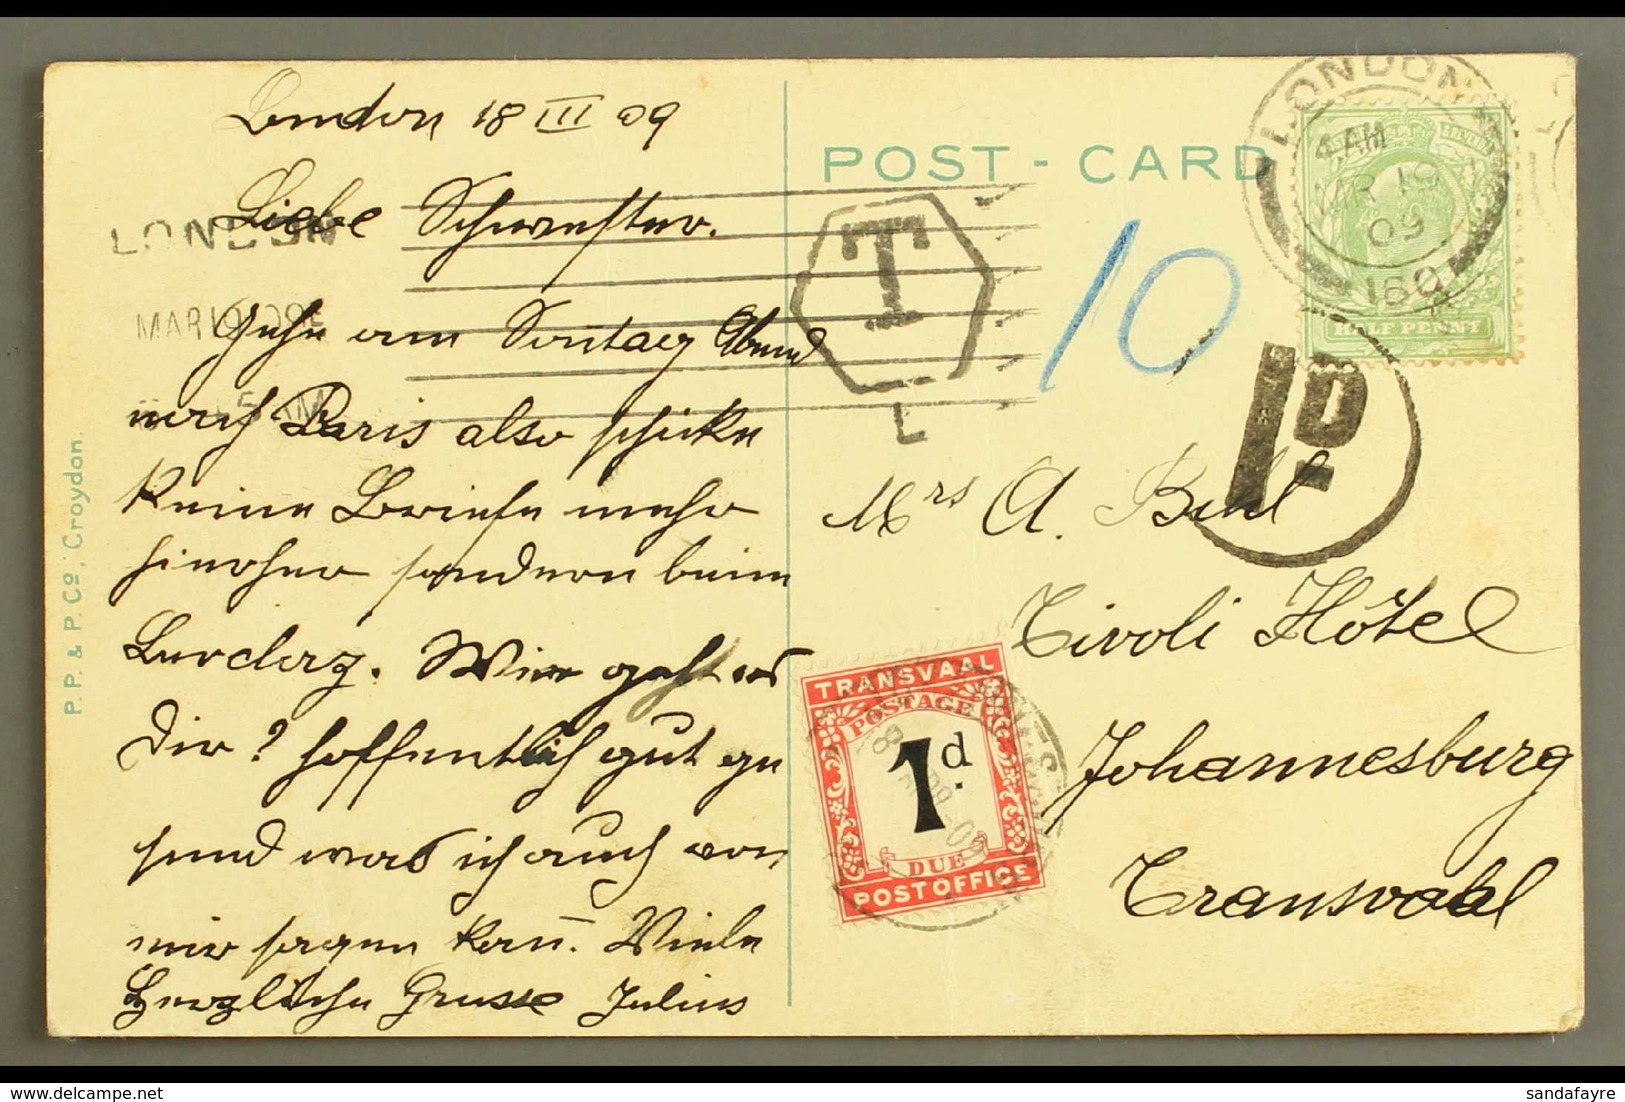 London 18 III 09
Liebe Schwester.
Gehe am Sonntag Abend
nach Paris also schicke
keine Briefe mehr
hierher sondern beim
Wie geht es
Dir? hoffentlich gut ge
sund was ich auch von
mir sagen kañ. Viele
Herzliche Grusse Julius
P. P. & P. Co, Croydon.
LONDON
MAR 19 09
POST - CARD
T
L
10
LONDON
4 AM
MR 19
09
160
HALF PENNY
1D
Mrs A.
Tivoli Hôtel
Johannesburg
Transvaal
TRANSVAAL
POSTAGE
1d.
DUE
POST OFFICE
sandafayre